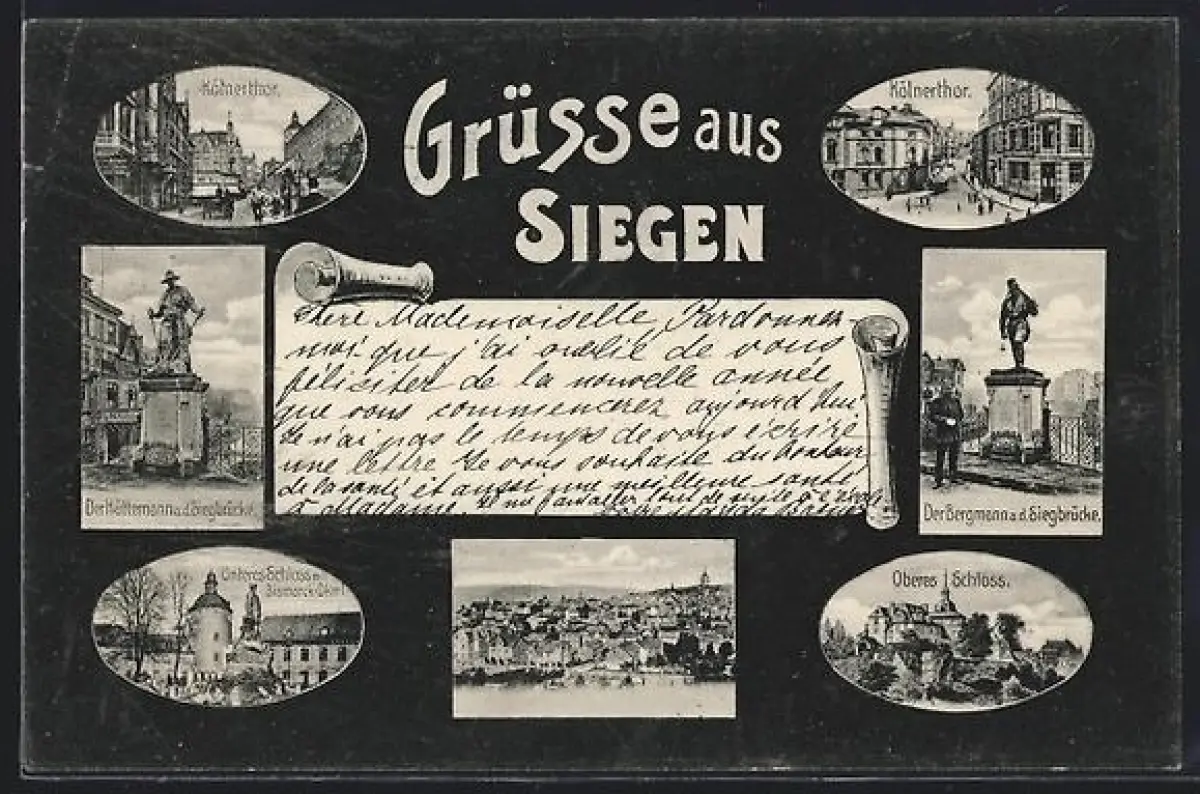 Kölnerthor.
Grüsse aus
SIEGEN
Kölnerthor.
Chère Mademoiselle Pardonnez
moi que j'ai oublié de vous
féliciter de la nouvelle année
que vous commencerez aujourd'hui
Je n'ai pas le temps de vous écrire
une lettre Je vous souhaite du bonheur
de la santé et aussi une meilleure santé
à Madame.
Der Hüttemann a.d. Siegbrücke.
Der Bergmann a.d. Siegbrücke.
Unteres Schloss m.
Bismarck-Dkm.
Oberes Schloss.